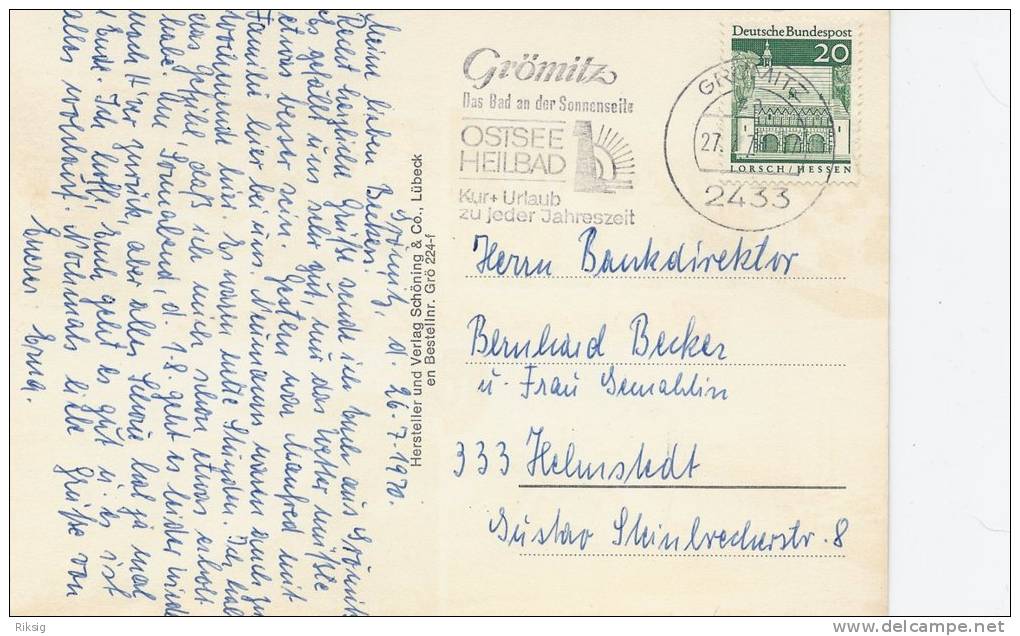 Grömitz, d. 26.7.1970.
Meine lieben Beckers!
Recht herzliche Grüße sende ich Euch aus Grömitz
Es gefällt uns sehr gut, nur das Wetter müßte
etwas besser sein. Gestern war Manfred mit
Familie hier bei uns. Neumanns waren auch zum
Wochenende hier. Es waren nette Stunden. Ich habe
das Gefühl, daß ich mich schon etwas erholt
habe. Am Sonnabend, d. 1.8. geht es leider wieder
nach H' zurück, aber alles Schöne hat ja mal
ein Ende. Ich hoffe, Euch geht es gut u. es ist
alles wohlauf. Nochmals liebe Grüße von
Eurer Erna.
Hersteller und Verlag Schöning & Co., Lübeck
en Bestellnr. Grö 224-f
Grömitz
Das Bad an der Sonnenseite
OSTSEE
HEILBAD
Kur + Urlaub
zu jeder Jahreszeit
GRÖMITZ
27.
2433
Deutsche Bundespost
20
LORSCH/HESSEN
Herrn Bankdirektor
Bernhard Becker
u. Frau Gemahlin
333 Helmstedt
Gustav Steinbrecherstr. 8
Riksig
www.delcampe.net